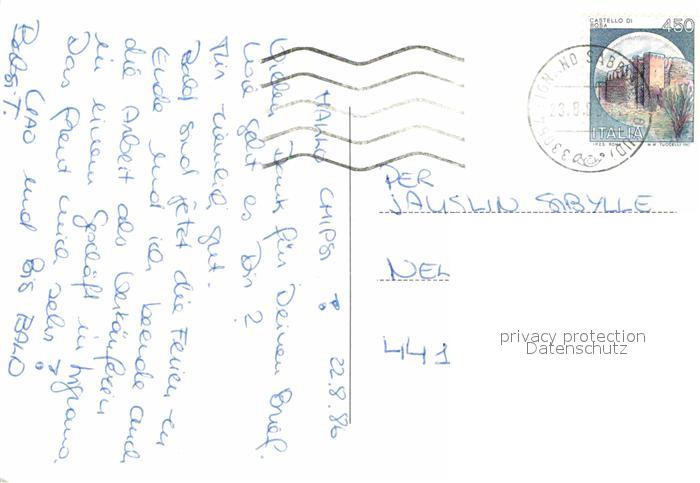 HALLO CHIPSI
22.8.86
Vielen Dank für Deinen Brief.
Wie geht es Dir?
Mir ziemlich gut.
Bald sind jetzt die Ferien zu
Ende und ich beende auch
die Arbeit als Verkäuferin
in einem Geschäft in Lignano.
Das freut mich sehr!
CIAO und BIS BALD
CASTELLO DI
BOSA
450
ITALIA
I.P.Z.S. ROMA
33054
SABBI
UD
23.8.
PER
JAUSLIN SIBYLLE
NEL
441
privacy protection
Datenschutz